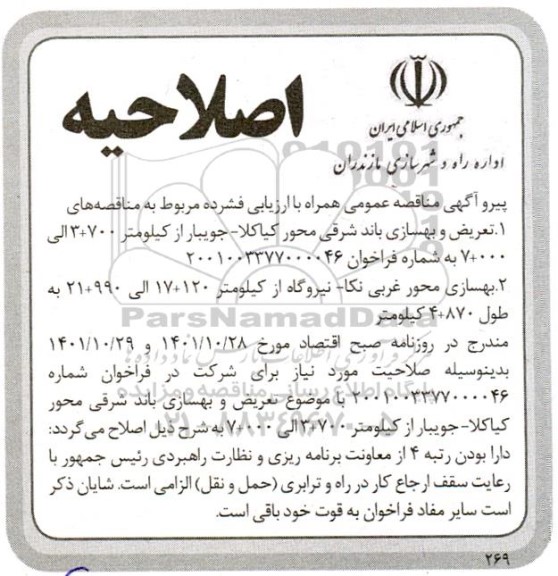 جمهوری اسلامی ایران
اداره راه و شهرسازی مازندران
اصلاحیه
پیرو آگهی مناقصه عمومی همراه با ارزیابی فشرده مربوط به مناقصه‌های
۱.تعریض و بهسازی باند شرقی محور کیاکلا-جویبار از کیلومتر ۷۰۰+۳ الی
۰۰۰+۷ به شماره فراخوان ۲۰۰۱۰۰۳۳۷۷۰۰۰۰۴۶
۲.بهسازی محور غربی نکا- نیروگاه از کیلومتر ۱۲۰+۱۷ الی ۹۹۰+۲۱ به
طول ۸۷۰+۴ کیلومتر
ParsNamadData
مندرج در روزنامه صبح اقتصاد مورخ ۱۴۰۱/۱۰/۲۸ و ۱۴۰۱/۱۰/۲۹
بدینوسیله صلاحیت مورد نیاز برای شرکت در فراخوان شماره
۲۰۰۱۰۰۳۳۷۷۰۰۰۰۴۶ با موضوع تعریض و بهسازی باند شرقی محور
کیاکلا-جویبار از کیلومتر ۷۰۰+۳ الی ۰۰۰+۷ به شرح ذیل اصلاح می‌گردد:
دارا بودن رتبه ۴ از معاونت برنامه ریزی و نظارت راهبردی رئیس جمهور با
رعایت سقف ارجاع کار در راه و ترابری (حمل و نقل) الزامی است. شایان ذکر
است سایر مفاد فراخوان به قوت خود باقی است.
۲۶۹